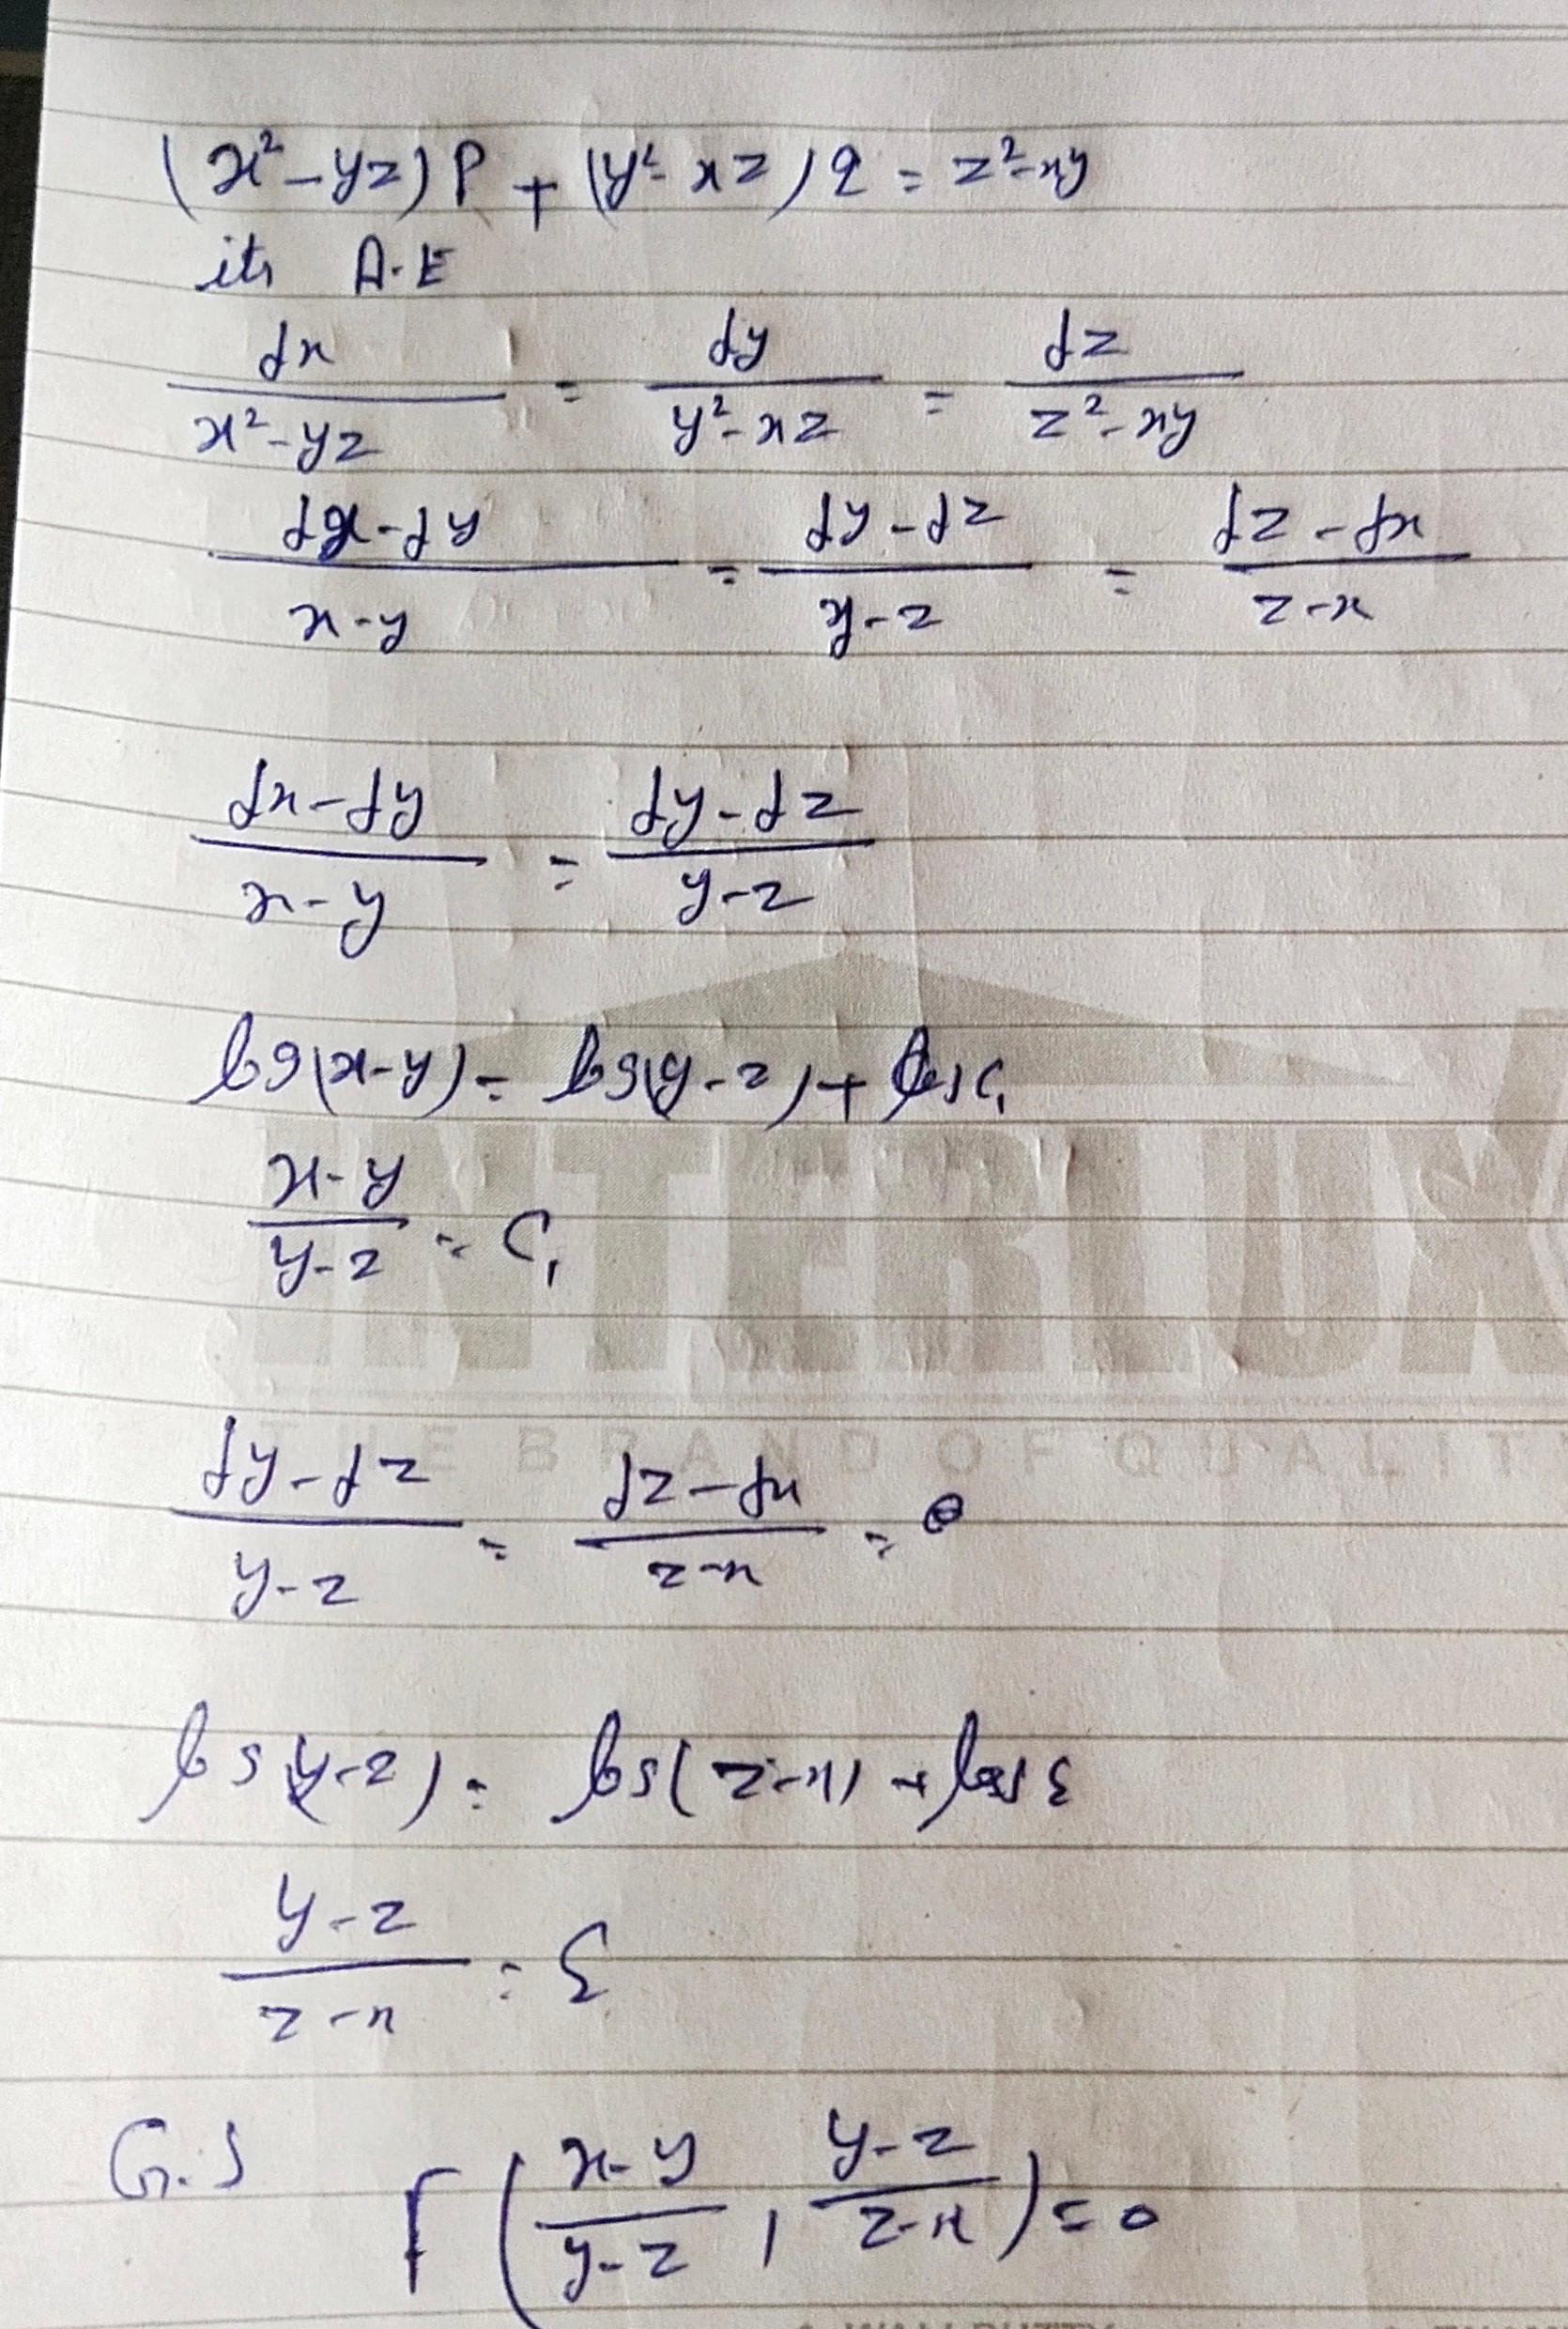 (x²-yz)p + (y²-xz)q = z²-xy
its A.E
dx/(x²-yz) = dy/(y²-xz) = dz/(z²-xy)
(dx-dy)/(x-y) = (dy-dz)/(y-z) = (dz-dx)/(z-x)
(dx-dy)/(x-y) = (dy-dz)/(y-z)
log(x-y) = log(y-z) + log c₁
(x-y)/(y-z) = C₁
INTERLUX
THE BRAND OF QUALIT
(dy-dz)/(y-z) = (dz-dx)/(z-x) =
log(y-z) = log(z-x) + log c₂
(y-z)/(z-x) = c₂
G.S f((x-y)/(y-z), (y-z)/(z-x)) = 0